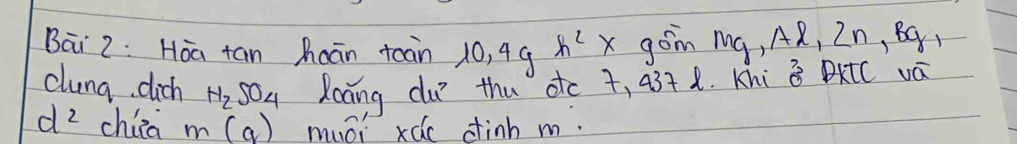 Bài 2: Hòa tan hoàn toàn 10,4g h² X gồm Mg, Al, Zn, bg,
dung dịch H₂SO₄ loãng dư thu đtc 7,437 l. Khí ở ĐKTC và
d² chứa m (g) muối xác định m.